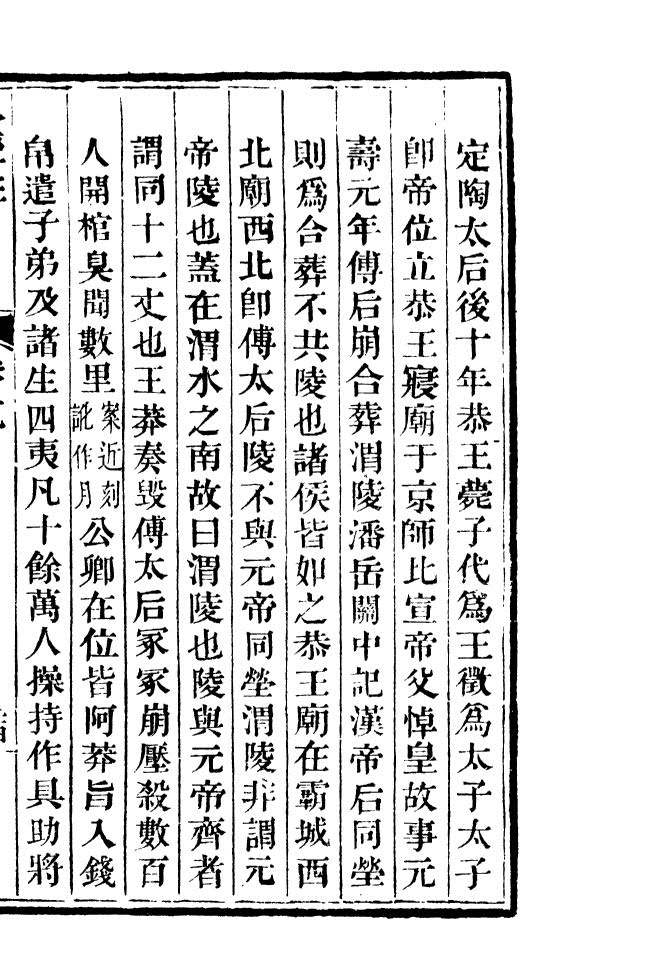 定陶太后後十年恭王薨子代爲王徵爲太子太子
卽帝位立恭王寢廟于京師比宣帝父悼皇故事元
壽元年傅后崩合葬渭陵潘岳關中記漢帝后同塋
則爲合葬不共陵也諸侯皆如之恭王廟在霸城西
北廟西北卽傅太后陵不與元帝同塋渭陵非謂元
帝陵也蓋在渭水之南故曰渭陵也陵與元帝齊者
謂同十二丈也王莽奏毀傅太后冢冢崩壓殺數百
人開棺臭聞數里案近刻訛作月公卿在位皆阿莽旨入錢
帛遣子弟及諸生四夷凡十餘萬人操持作具助將